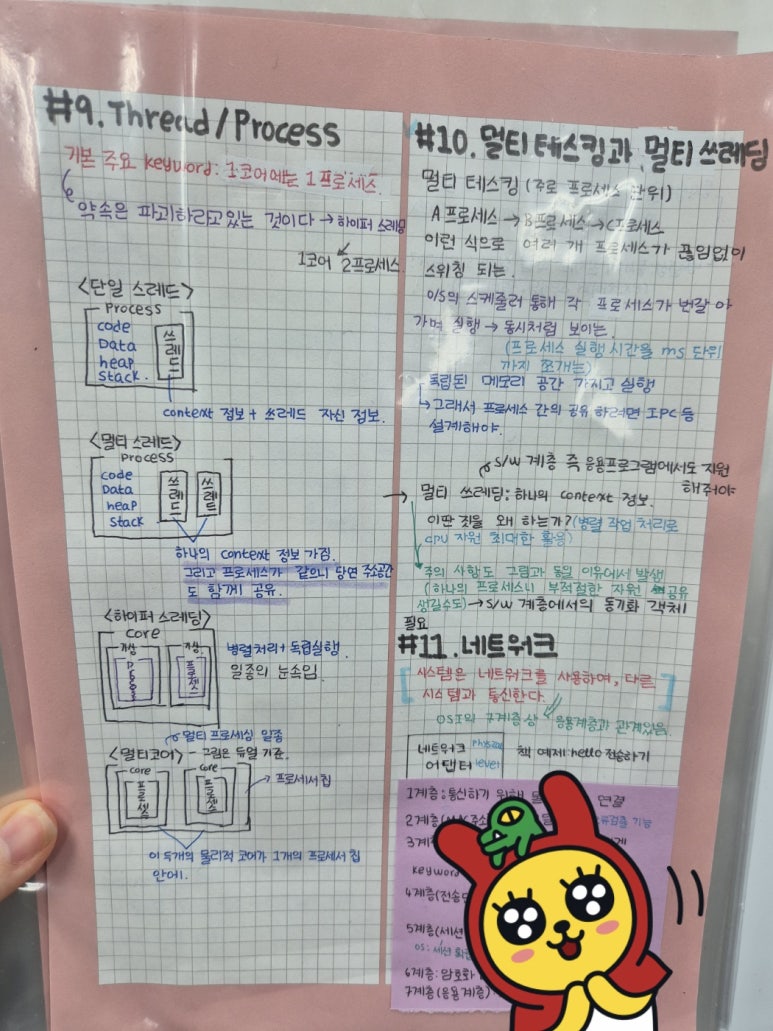 #9. Thread/Process
기본 주요 keyword: 1코어에는 1프로세스.
약속은 파괴하라고있는 것이다 → 하이퍼 스레딩
1코어 2프로세스.
<단일 스레드>
Process
code
Data
heap
stack.
쓰레드
context 정보 + 쓰레드 자신 정보.
<멀티 스레드>
Process
code
Data
heap
stack.
쓰레드
쓰레드
하나의 context 정보 가짐.
그리고 프로세스가 같으니 당연 주소공간
도 함께 공유.
<하이퍼 스레딩>
core
가상
가상
프로세스
병렬처리 + 독립실행.
일종의 눈속임.
멀티 프로세싱 일종
<멀티코어> - 그림은 듀얼 기준.
core
core
프로세스
프로세스
프로세서 칩
이 두개의 물리적 코어가 1개의 프로세서 칩
안에.
#10. 멀티 테스킹과 멀티 쓰레딩
멀티 테스킹 (주로 프로세스 단위)
A프로세스 → B프로세스 → C프로세스
이런 식으로 여러 개 프로세스가 끊임없이
스위칭 되는.
O/S의 스케줄러 통해 각 프로세스가 번갈아
가며 실행 → 동시처럼 보이는.
(프로세스 실행 시간을 ms 단위
까지 쪼개는)
독립된 메모리 공간 가지고 실행
→ 그래서 프로세스 간의 공유 하려면 IPC 등
설계해야.
S/W 계층 즉 응용프로그램에서도 지원
해줘야
→ 멀티 쓰레딩: 하나의 context 정보.
이딴 짓을 왜 하는가? (병렬 작업 처리로
cpu 자원 최대한 활용)
주의 사항도 그림과 동일 이유에서 발생
(하나의 프로세스니 부적절한 자원 공유
생길수도) → S/W 계층에서의 동기화 객체
필요
#11. 네트워크
[시스템은 네트워크를 사용하여, 다른
시스템과 통신한다.]
OSI의 7계층 상 응용계층과 관계있음.
네트워크
어댑터
physical
level
책 예제: hello 전송하기
1계층: 통신하기 위해 연결
2계층 기능
3계층
keyword
4계층(전송
5계층(세션
OS: 세션
6계층: 암호화
7계층(응용계층)